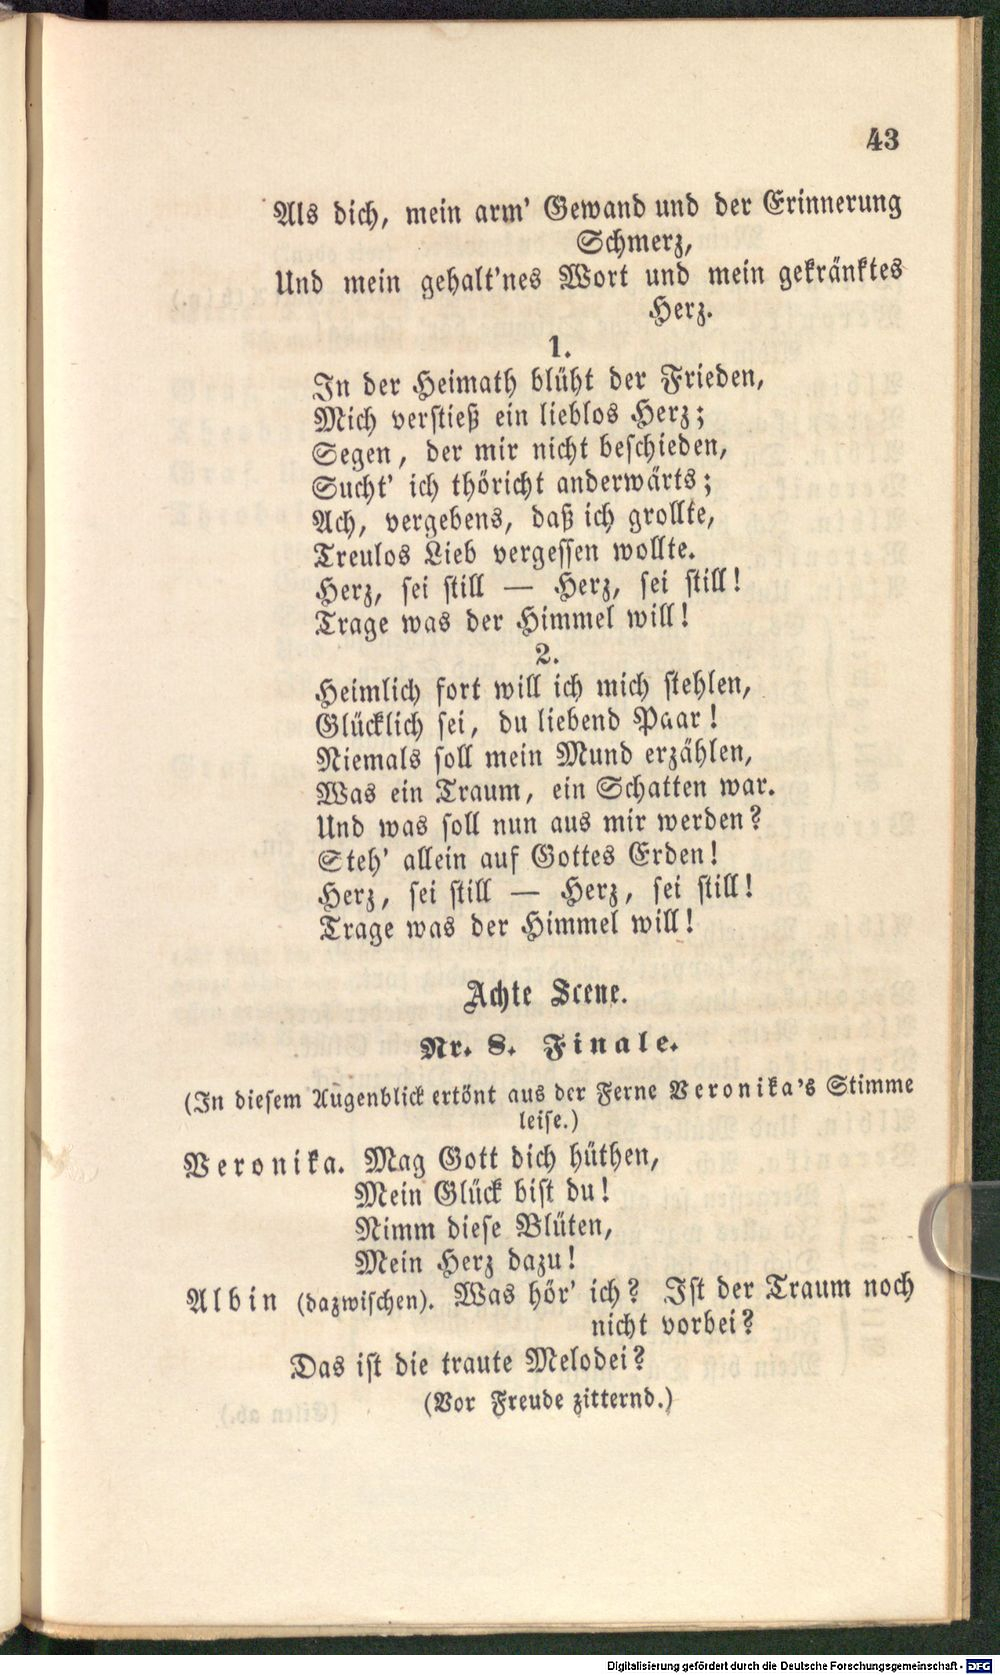 43
Als dich, mein arm' Gewand und der Erinnerung
Schmerz,
Und mein gehalt'nes Wort und mein gekränktes
Herz.
1.
In der Heimath blüht der Frieden,
Mich verstieß ein lieblos Herz;
Segen, der mir nicht beschieden,
Sucht' ich thöricht anderwärts;
Ach, vergebens, daß ich grollte,
Treulos Lieb vergessen wollte.
Herz, sei still — Herz, sei still!
Trage was der Himmel will!
2.
Heimlich fort will ich mich stehlen,
Glücklich sei, du liebend Paar!
Niemals soll mein Mund erzählen,
Was ein Traum, ein Schatten war.
Und was soll nun aus mir werden?
Steh' allein auf Gottes Erden!
Herz, sei still — Herz, sei still!
Trage was der Himmel will!
Achte Scene.
Nr. 8. Finale.
(In diesem Augenblick ertönt aus der Ferne Veronika's Stimme
leise.)
Veronika. Mag Gott dich hüthen,
Mein Glück bist du!
Nimm diese Blüten,
Mein Herz dazu!
Albin (dazwischen). Was hör' ich? Ist der Traum noch
nicht vorbei?
Das ist die traute Melodei?
(Vor Freude zitternd.)
Digitalisierung gefördert durch die Deutsche Forschungsgemeinschaft - DFG